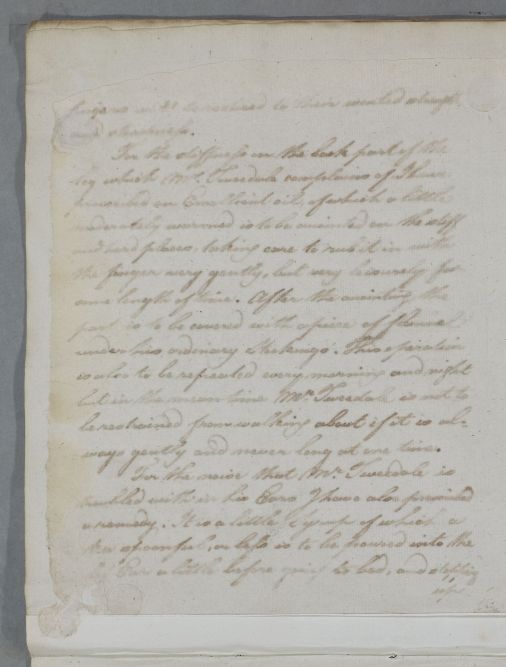 fingers will be restored to their wonted strength
and steadiness.
For the stiffness on the back part of the
leg which Mr. Tweedale complains of I have
an Emollient oil, of which a little
moderately warmed is to be anointed on the stiff
and hard places, taking care to rub it in with
the finger very gently, but very leisurely for
some length of time. After the anointing the
part is to be covered with a piece of flannel
under his ordinary stockings. This operation
is also to be repeated every morning and night
but in the mean time Mr. Tweedale is not to
be restrained from walking about if it is al-
ways gently and never long at one time.
For the noise that Mr. Tweedale is
troubled with in his Ears I have also provided
a remedy. It is a little of which a
tea spoonful, or less is to be poured into the
Ear a little before going to bed, and stopping